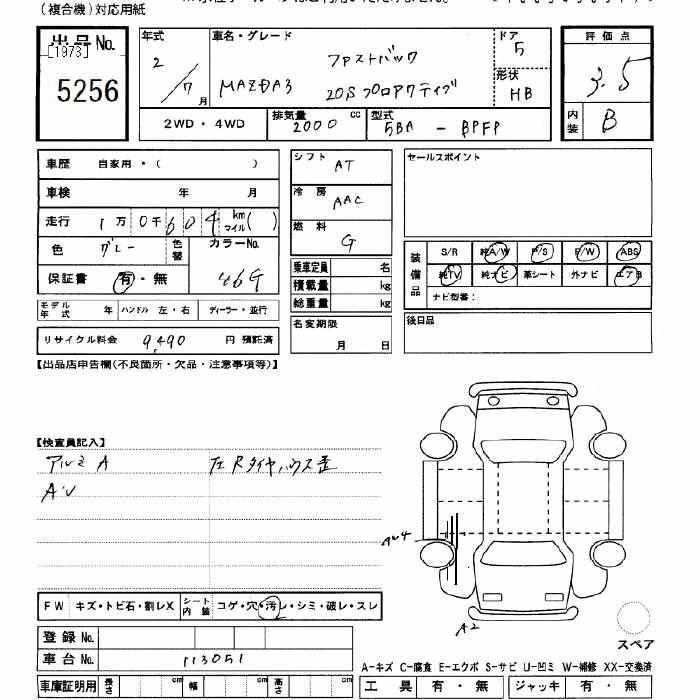 (複合機)対応用紙
出品No.
[1973]
5256
年式 2/7月
車名・グレード
ファストバック
MAZDA3 20Sプロアクティブ
ドア 5
形状 HB
2WD・4WD
排気量 2000 cc
型式 5BA - BPFP
評価点 3.5
内装 B
車歴 自家用・( )
車検 年 月
走行 1万0千604 km マイル( )
色 グレー 色替 カラーNo. 46G
保証書 有・無
モデル年式 年 ハンドル 左・右 ディーラー・並行
リサイクル料金 9,490 円 預託済
シフト AT
冷房 AAC
燃料 G
乗車定員 名
積載量 kg
総重量 kg
名変期限
月 日
セールスポイント
装備品
S/R 純A/W P/S P/W ABS
純TV 純ナビ 革シート 外ナビ エアB
ナビ型番:
後日品
【出品店申告欄(不良箇所・欠品・注意事項等)】
【検査員記入】
アルミ A 左Rタイヤハウス歪
A'U
AU4
A2
スペア
FW キズ・トビ石・割レX シート内装 コゲ・穴・汚レ・シミ・破レ・スレ
登録No.
車台No. 113051
車庫証明用 長さ cm 幅 cm 高さ cm
A-キズ C-腐食 E-エクボ S-サビ U-凹ミ W-補修 XX-交換済
工具 有・無 ジャッキ 有・無